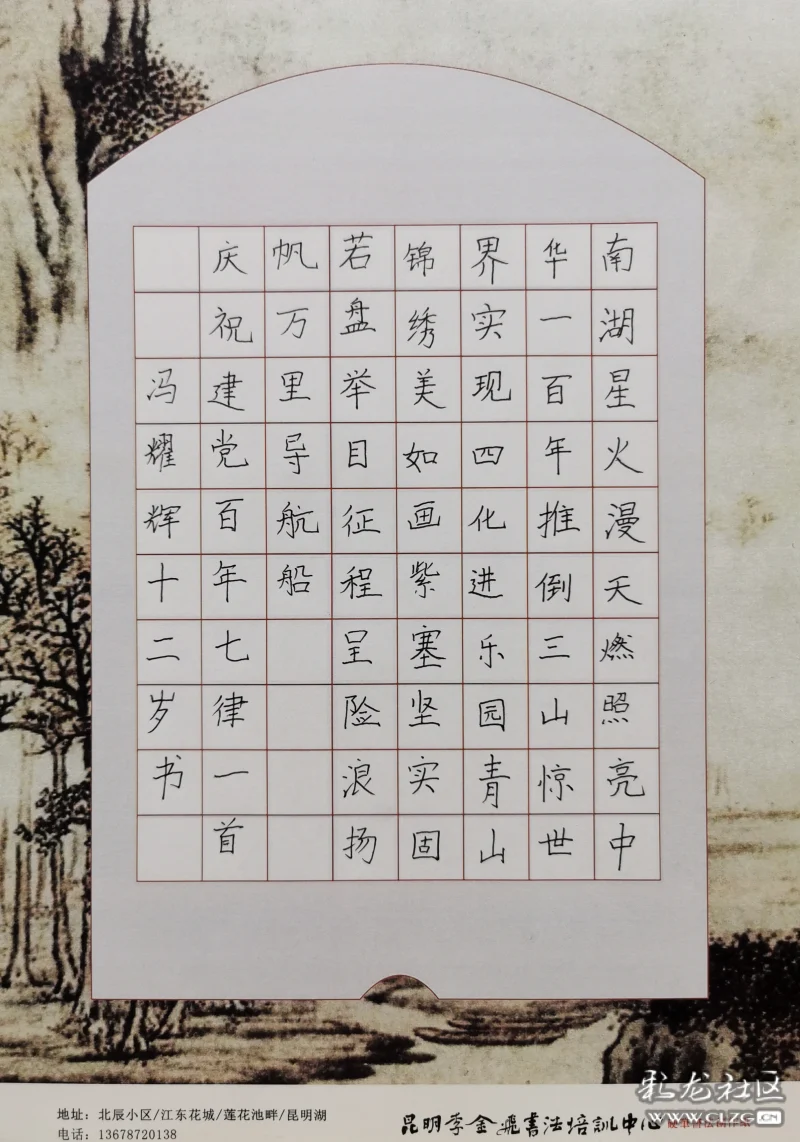 南湖星火漫天燃照亮中
华一百年推倒三山惊世
界实现四化进乐园青山
锦绣美如画紫塞坚实固
若盘举目征程呈险浪扬
帆万里导航船
庆祝建党百年七律一首
冯耀辉十二岁书
地址：北辰小区/江东花城/莲花池畔/昆明湖
电话：13678720138
昆明李金飛书法培訓中心
彩龙社区
WWW.CLZG.CN